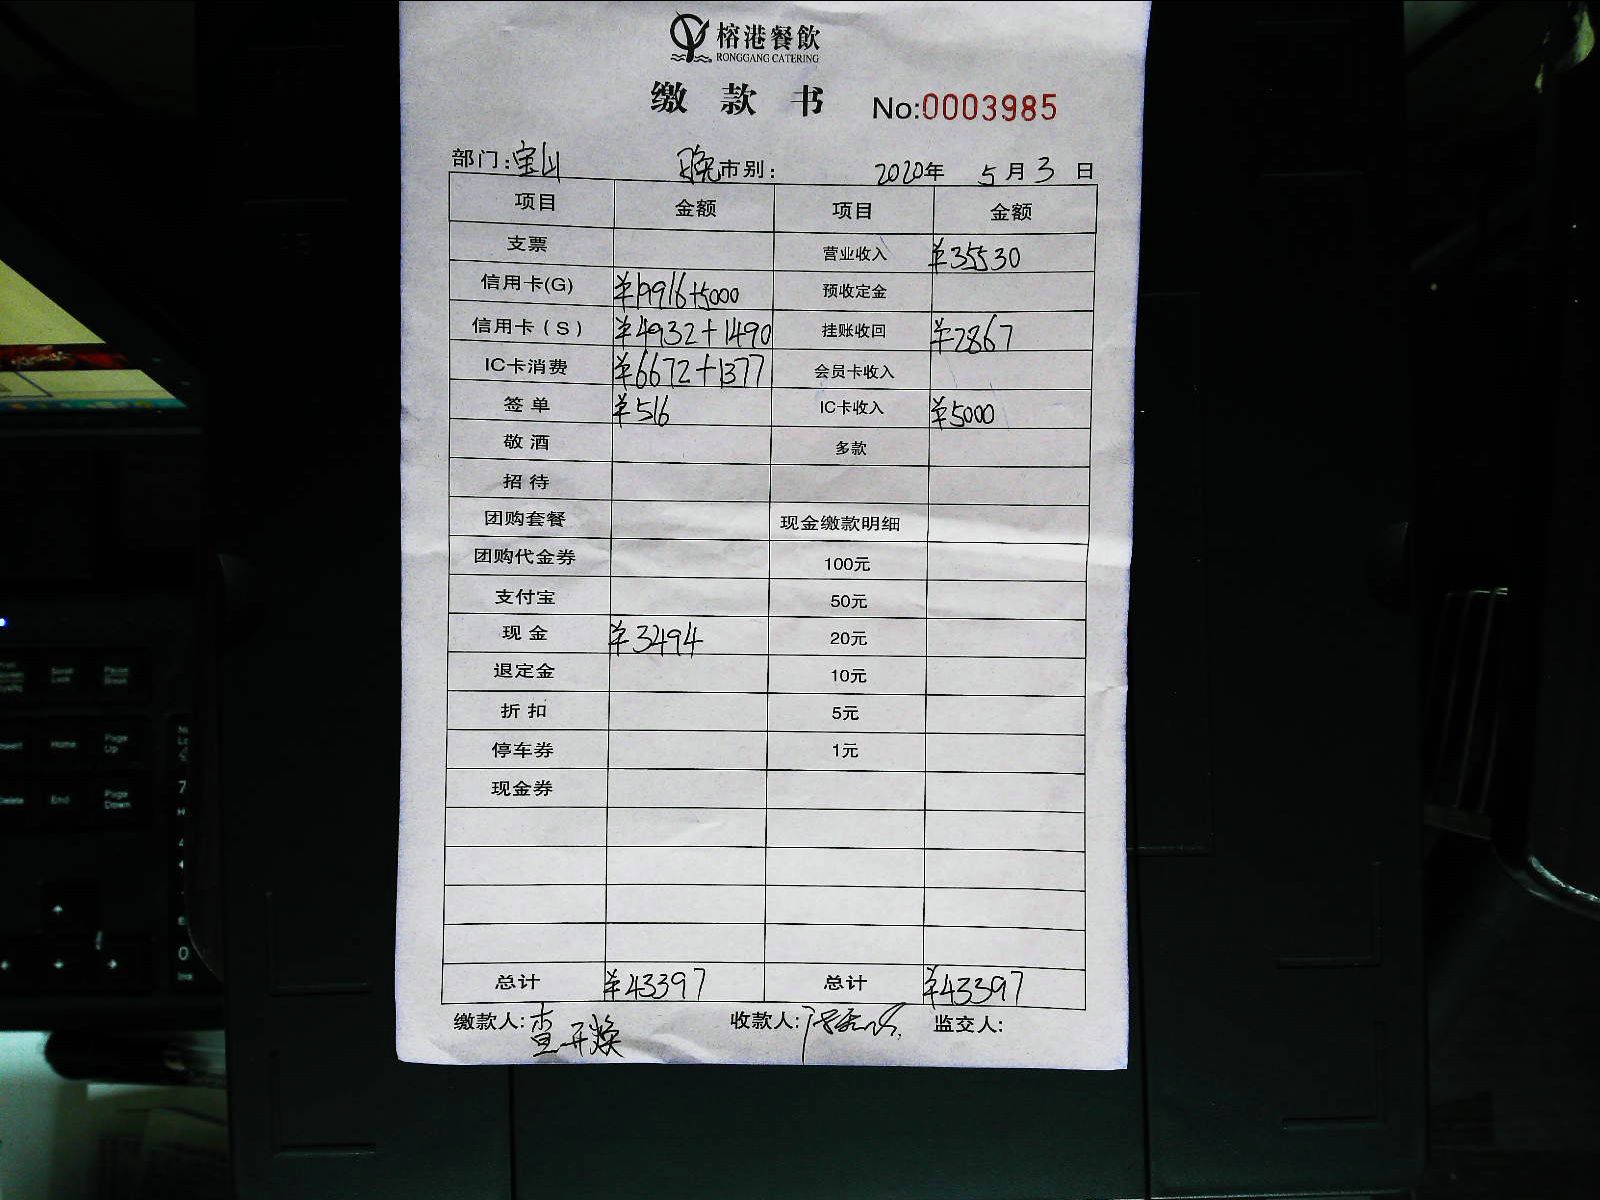 榕港餐飲
RONGGANG CATERING
缴款书 No:0003985
部门:宝山 晚市别: 2020年 5月3日
项目 金额 项目 金额
支票 营业收入 ¥35530
信用卡(G) ¥19916+5000 预收定金
信用卡(S) ¥4932+1490 挂账收回 ¥2867
IC卡消费 ¥6672+1377 会员卡收入
签单 ¥516 IC卡收入 ¥5000
敬酒 多款
招待
团购套餐 现金缴款明细
团购代金券 100元
支付宝 50元
现金 ¥3494 20元
退定金 10元
折扣 5元
停车券 1元
现金券
总计 ¥43397 总计 ¥43397
缴款人:查开焕 收款人: 监交人:
Home
Page Up
End
Page Down